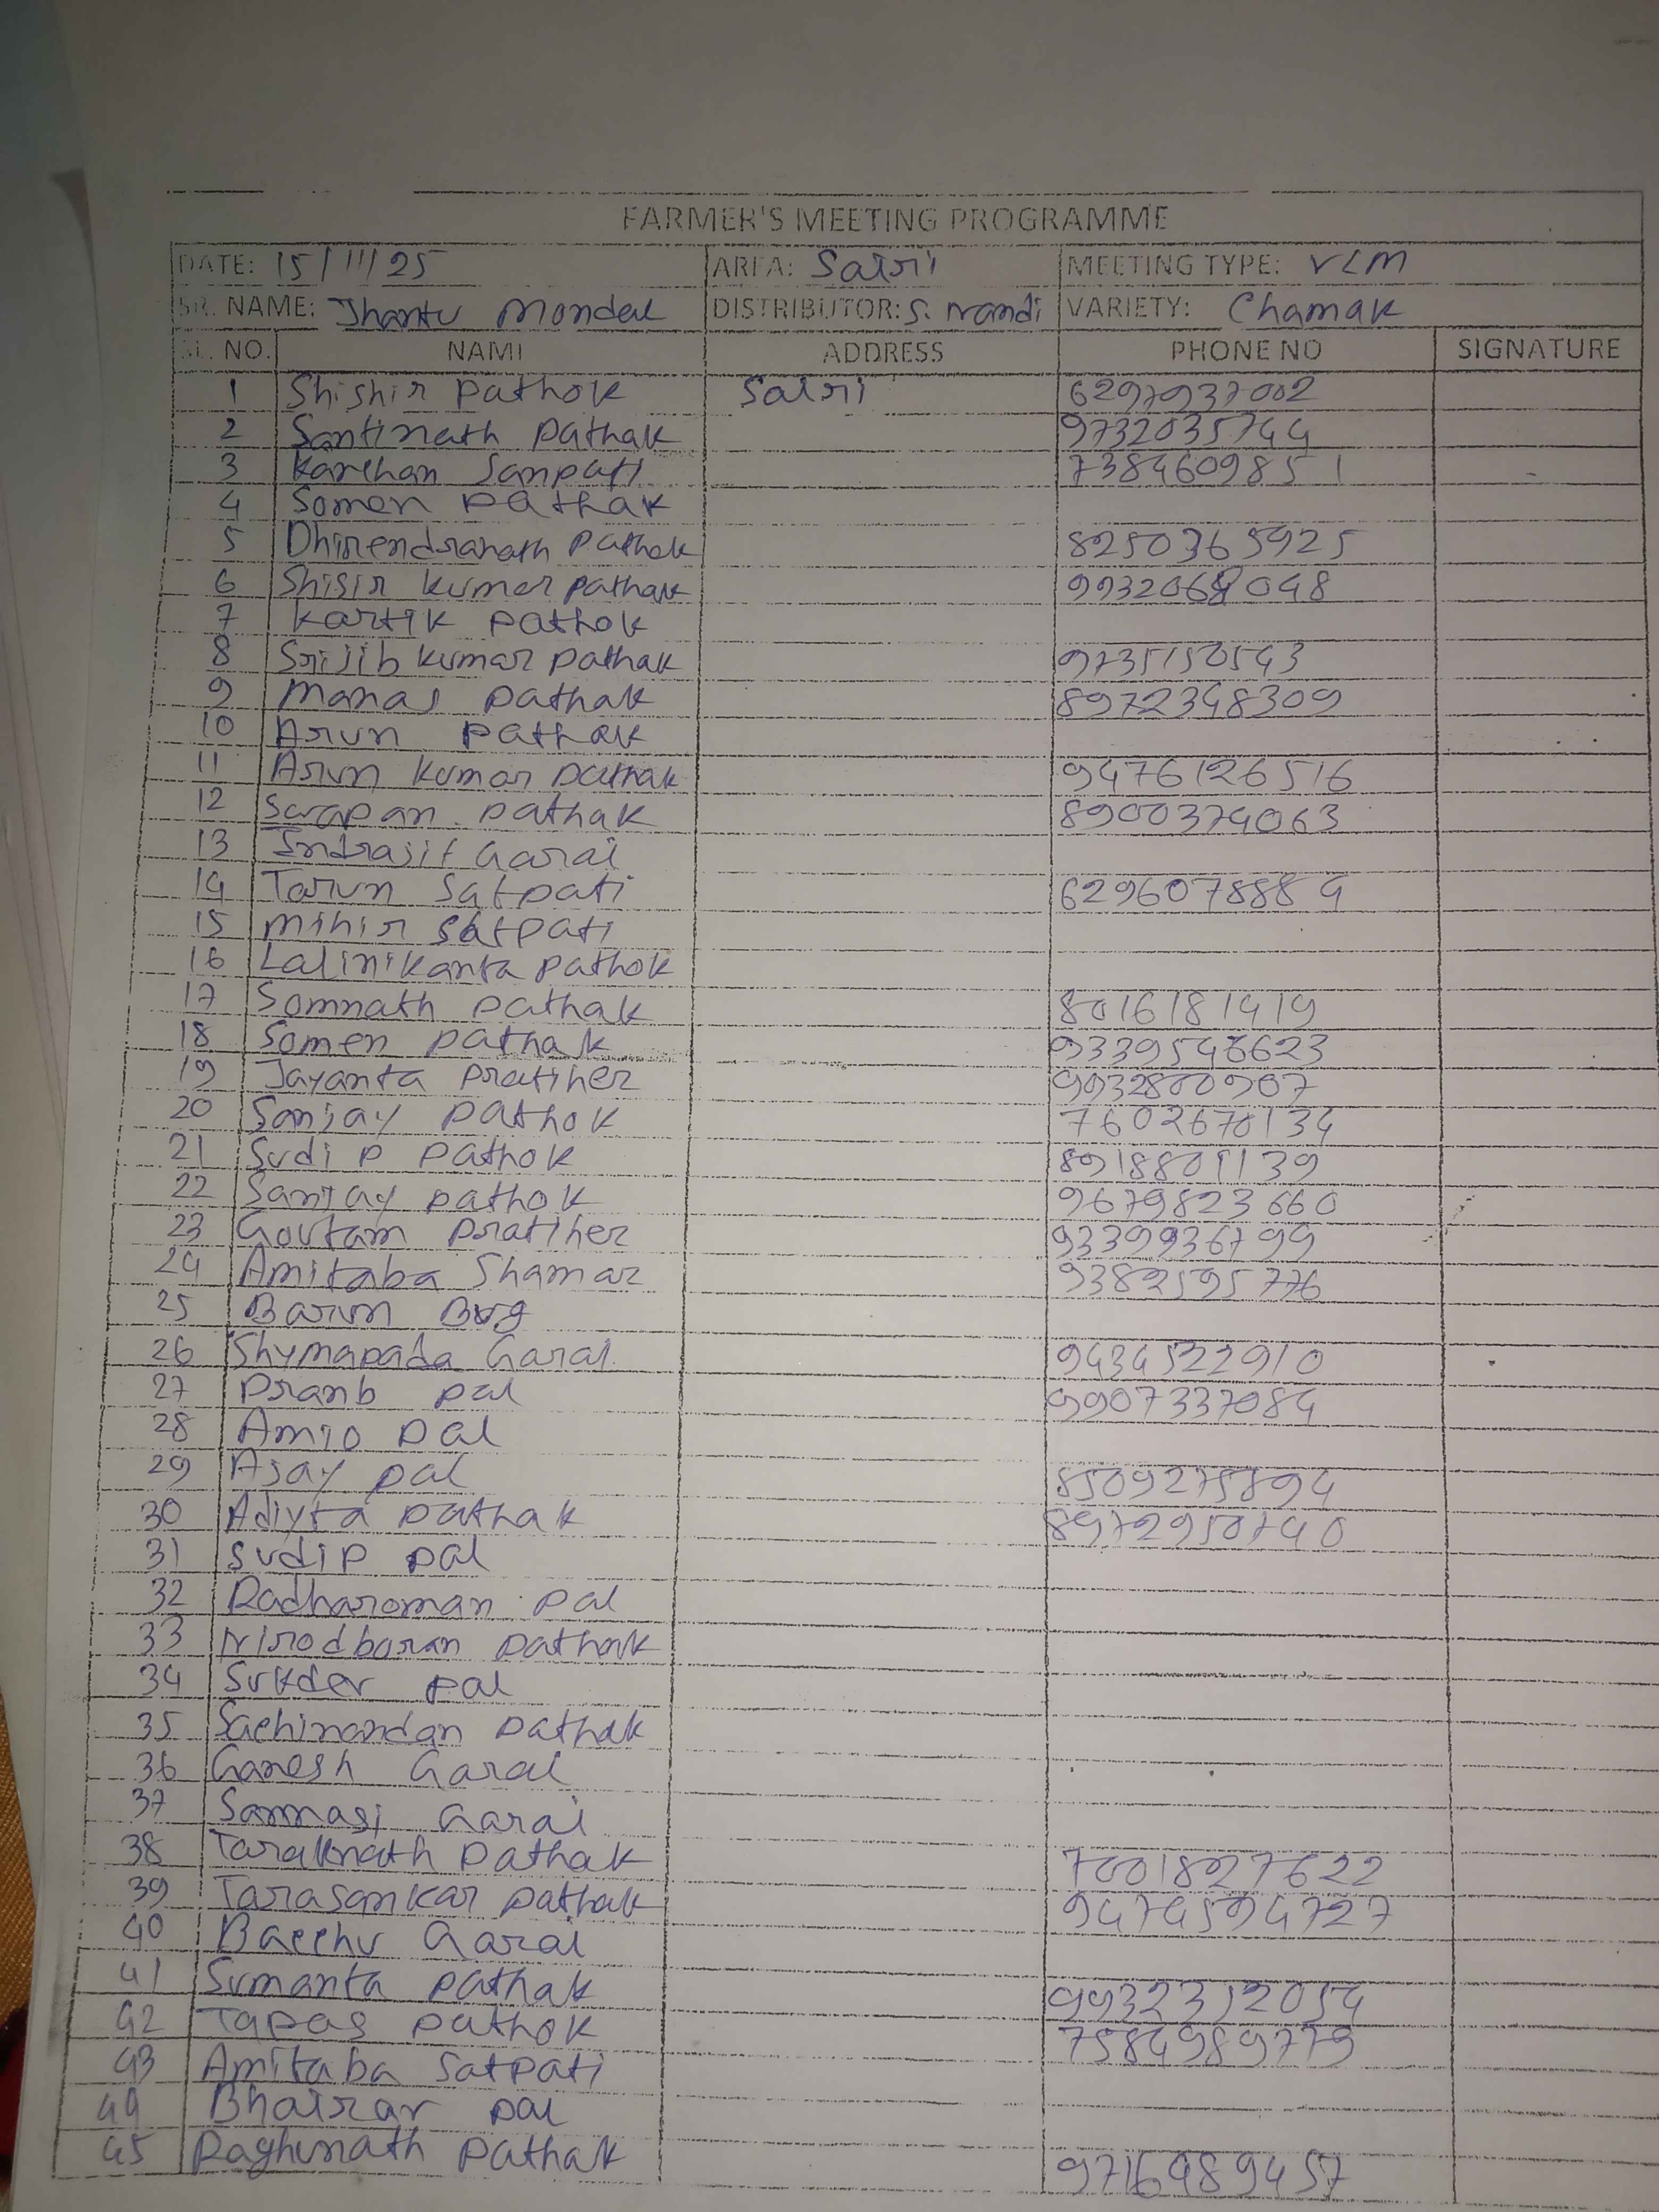 FARMER'S MEETING PROGRAMME
DATE: 15/11/25 AREA: Satri MEETING TYPE: VLM
SR. NAME: Jhantu Mondal DISTRIBUTOR: S. Nandi VARIETY: Chamak
SL. NO. NAME ADDRESS PHONE NO SIGNATURE
1 Shishir Pathok Satri 6297937002
2 Santinath Pathak 9732035744
3 Kanchan Sanpati 7384609851
4 Somen Pathak
5 Dhirendranath Pathak 8250365925
6 Shisir Kumar Pathak
7 Kartik Pathok
8 Srijib Kumar Pathak 9735150543
9 Manas Pathak 8972348309
10 Arun Pathak
11 Arun Kumar Pathak 9476126516
12 Swapan Pathak 8900374063
13 Indrajit Garai
14 Tarun Satpati 6296078884
15 Mihir Satpati
16 Lalinikanta Pathok
17 Somnath Pathak 8016181419
18 Somen Pathak
19 Jayanta Pratiher 9932800907
20 Sanjay Pathok 7602670134
21 Sudip Pathok
22 Sanjay Pathok 9679823660
23 Goutam Pratiher 9339936799
24 Amitaba Shamar 9382595776
25 Barun Bug
26 Shymapada Garai 9434522910
27 Pranb Pal 9907337084
28 Amio Pal
29 Ajay Pal 8509275894
30 Adiyta Pathak 8972950740
31 Sudip Pal
32 Radharoman Pal
33 Nirodbaran Pathak
34 Sukdev Pal
35 Sachinandan Pathak
36 Ganesh Garai
37 Sannasi Garai
38 Taraknath Pathak 7001827622
39 Tarasankar Pathak 9474594727
40 Bacchu Garai
41 Sumanta Pathak 9932312054
42 Tapas Pathok 7584989779
43 Amitaba Satpati
44 Bhairav Pal
45 Raghunath Pathak